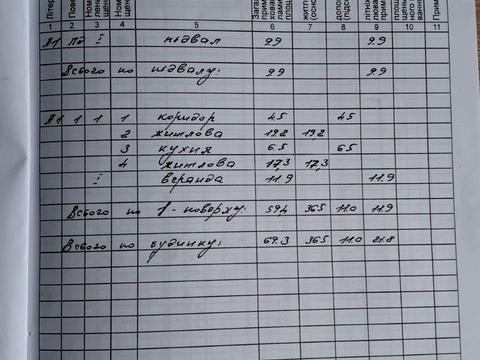 1 2 3 4 5 6 7 8 9 10 11
А1 Пд I підвал 9.9 9.9
Всього по підвалу: 9.9 9.9
А1 1 1 1 коридор 4.5 4.5
2 житлова 19.2 19.2
3 кухня 6.5 6.5
4 житлова 17.3 17.3
I веранда 11.9 11.9
Всього по 1-поверху: 59.4 36.5 11.0 11.9
Всього по будинку: 69.3 36.5 11.0 21.8